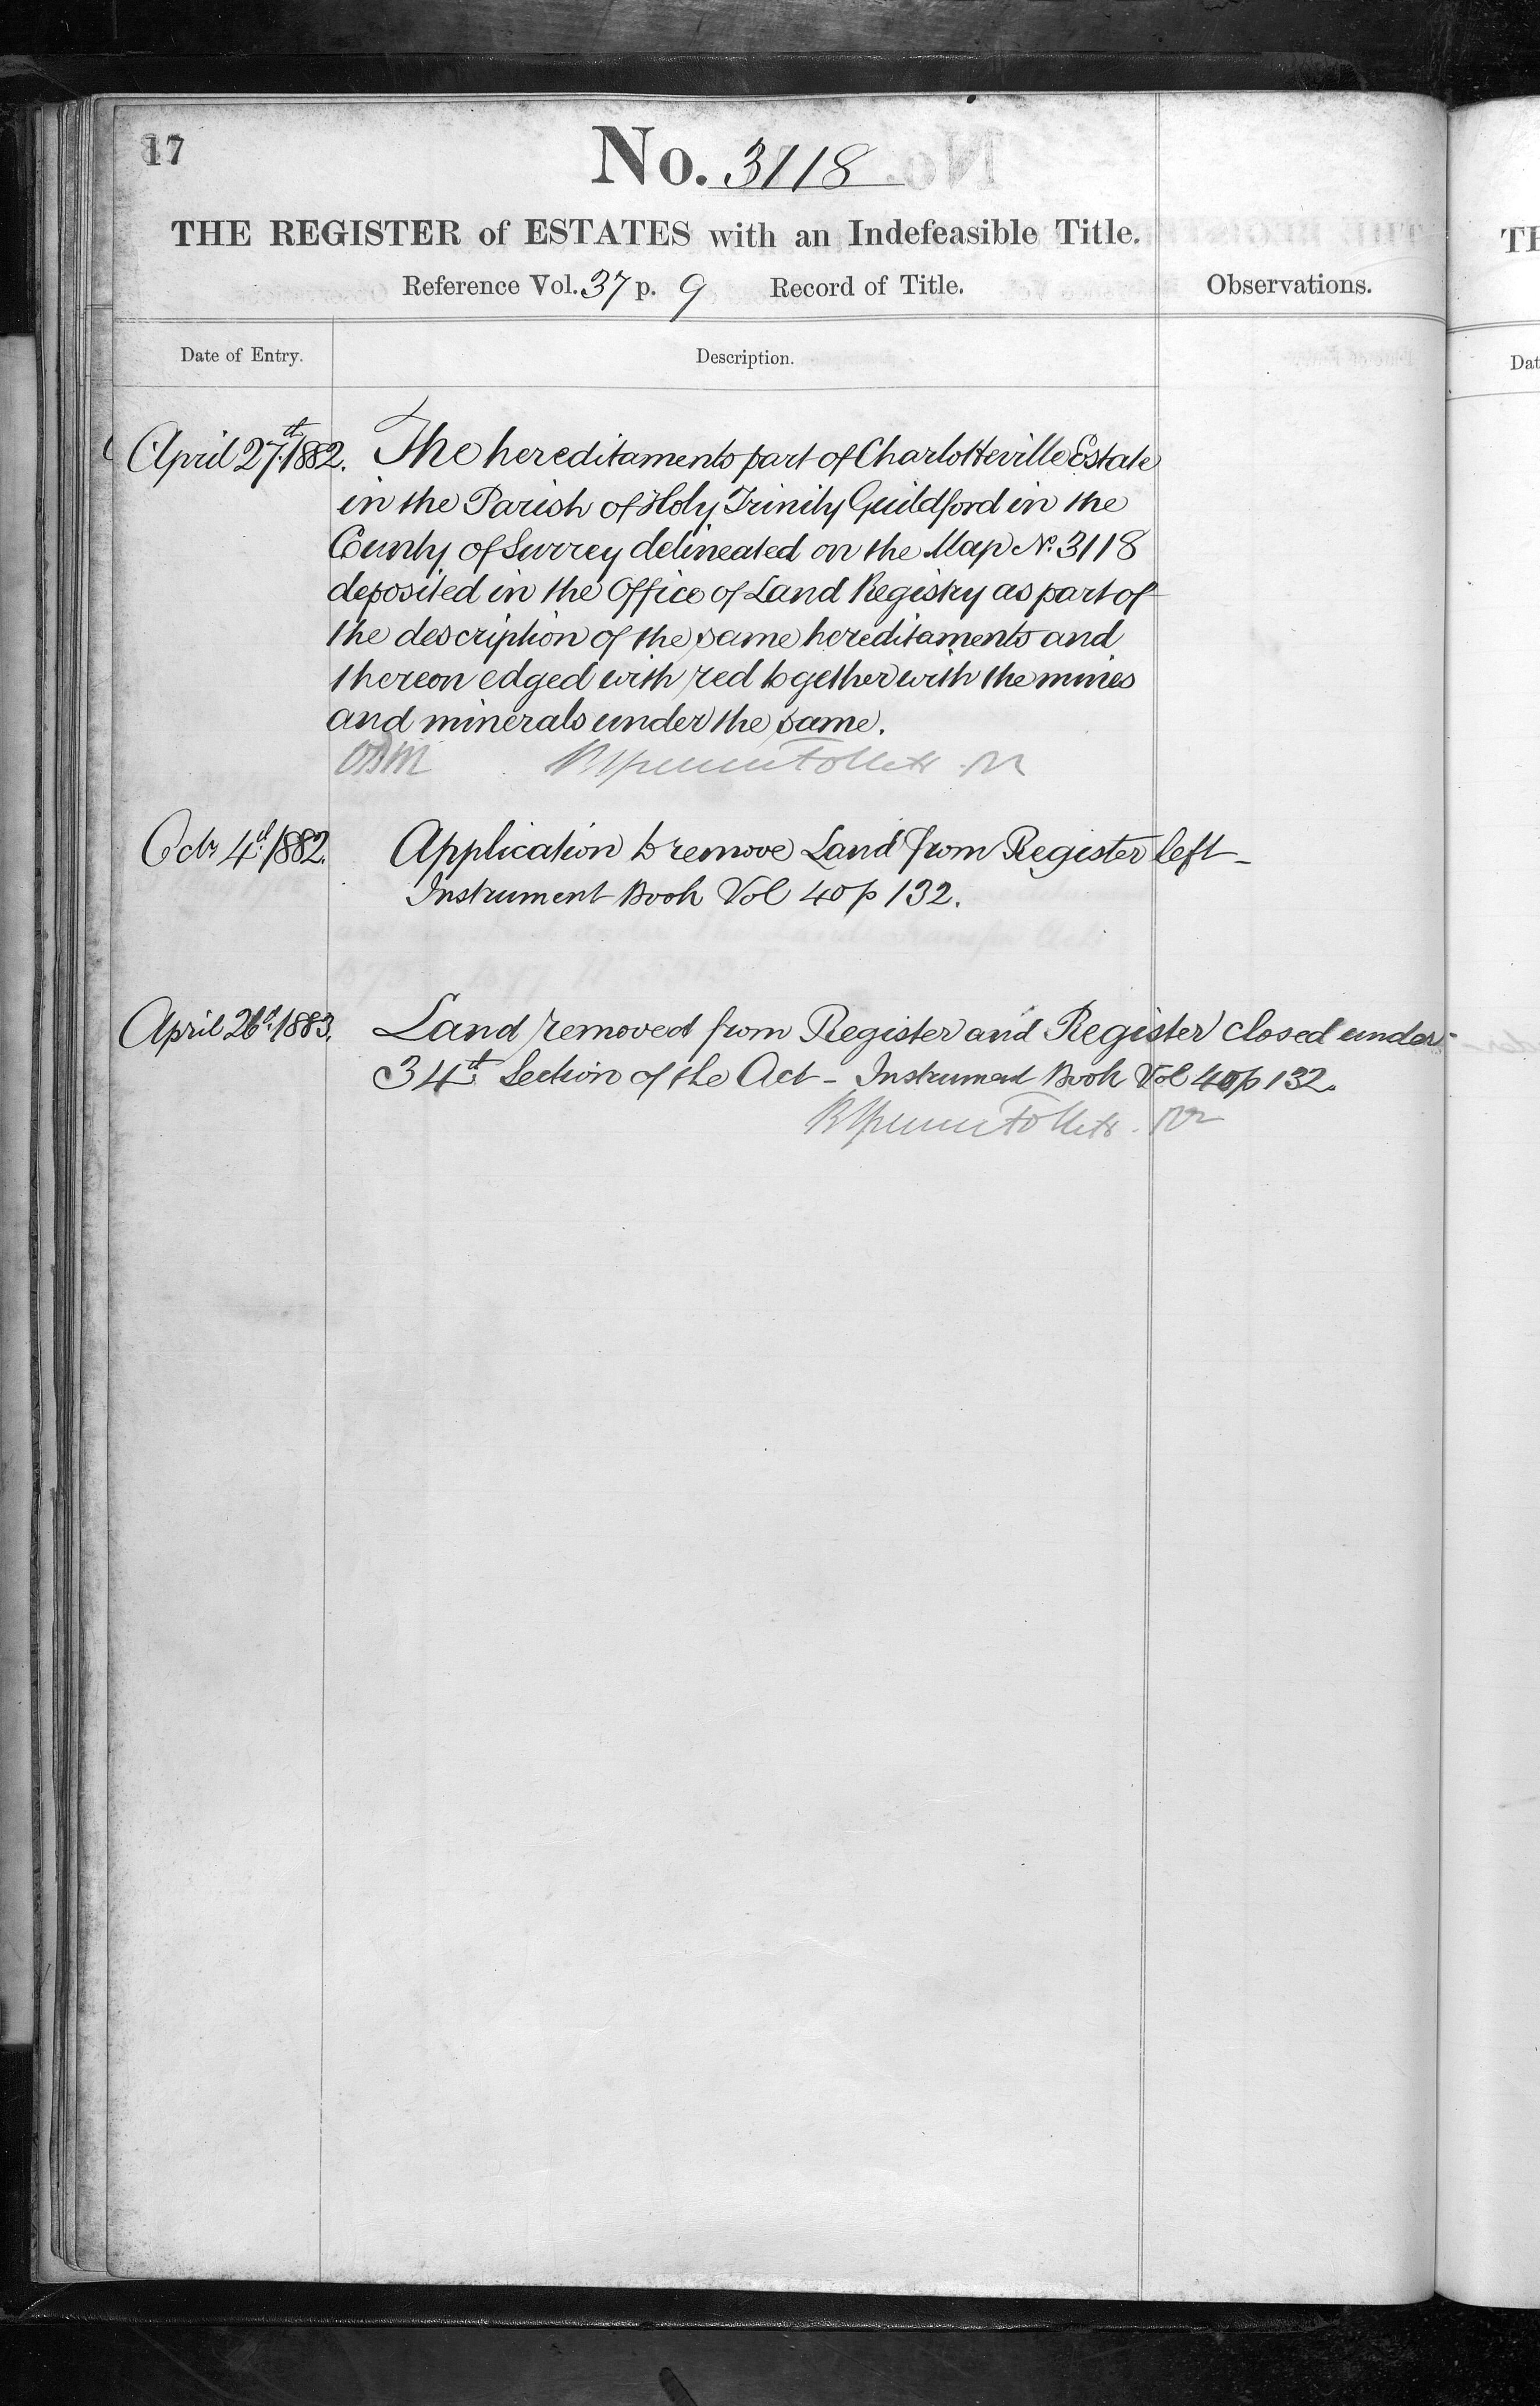 17
No. 3118
THE REGISTER of ESTATES with an Indefeasible Title.
Reference Vol. 37 p. 9 Record of Title.
Observations.
Date of Entry.
Description.
April 27th 1882. The hereditaments part of Charlotteville Estate
in the Parish of Holy Trinity Guildford in the
County of Surrey delineated on the Map No. 3118
deposited in the Office of Land Registry as part of
the description of the same hereditaments and
thereon edged with red together with the mines
and minerals under the same.
Octr 4th 1882. Application to remove Land from Register left -
Instrument Book Vol 40 p 132.
April 26th 1883. Land removed from Register and Register closed under
34th Section of the Act - Instrument Book Vol 40 p 132.
TH
Dat